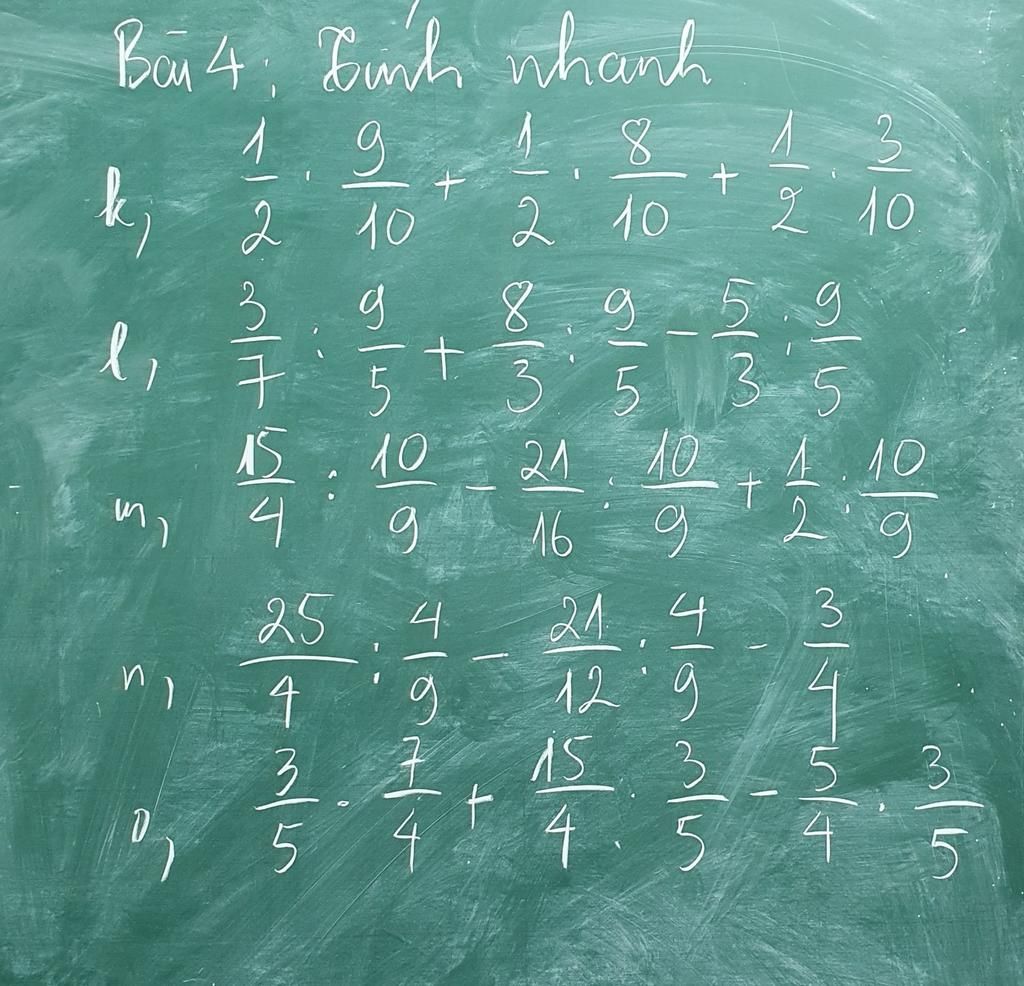 Bài 4: Tính nhanh
k, 1/2 . 9/10 + 1/2 . 8/10 + 1/2 . 3/10
l, 3/7 : 9/5 + 8/3 : 9/5 - 5/3 : 9/5
m, 15/4 : 10/9 - 21/16 : 10/9 + 1/2 . 10/9
n, 25/4 : 4/9 - 21/12 : 4/9 - 3/4
o, 3/5 . 7/4 + 15/4 . 3/5 - 5/4 . 3/5